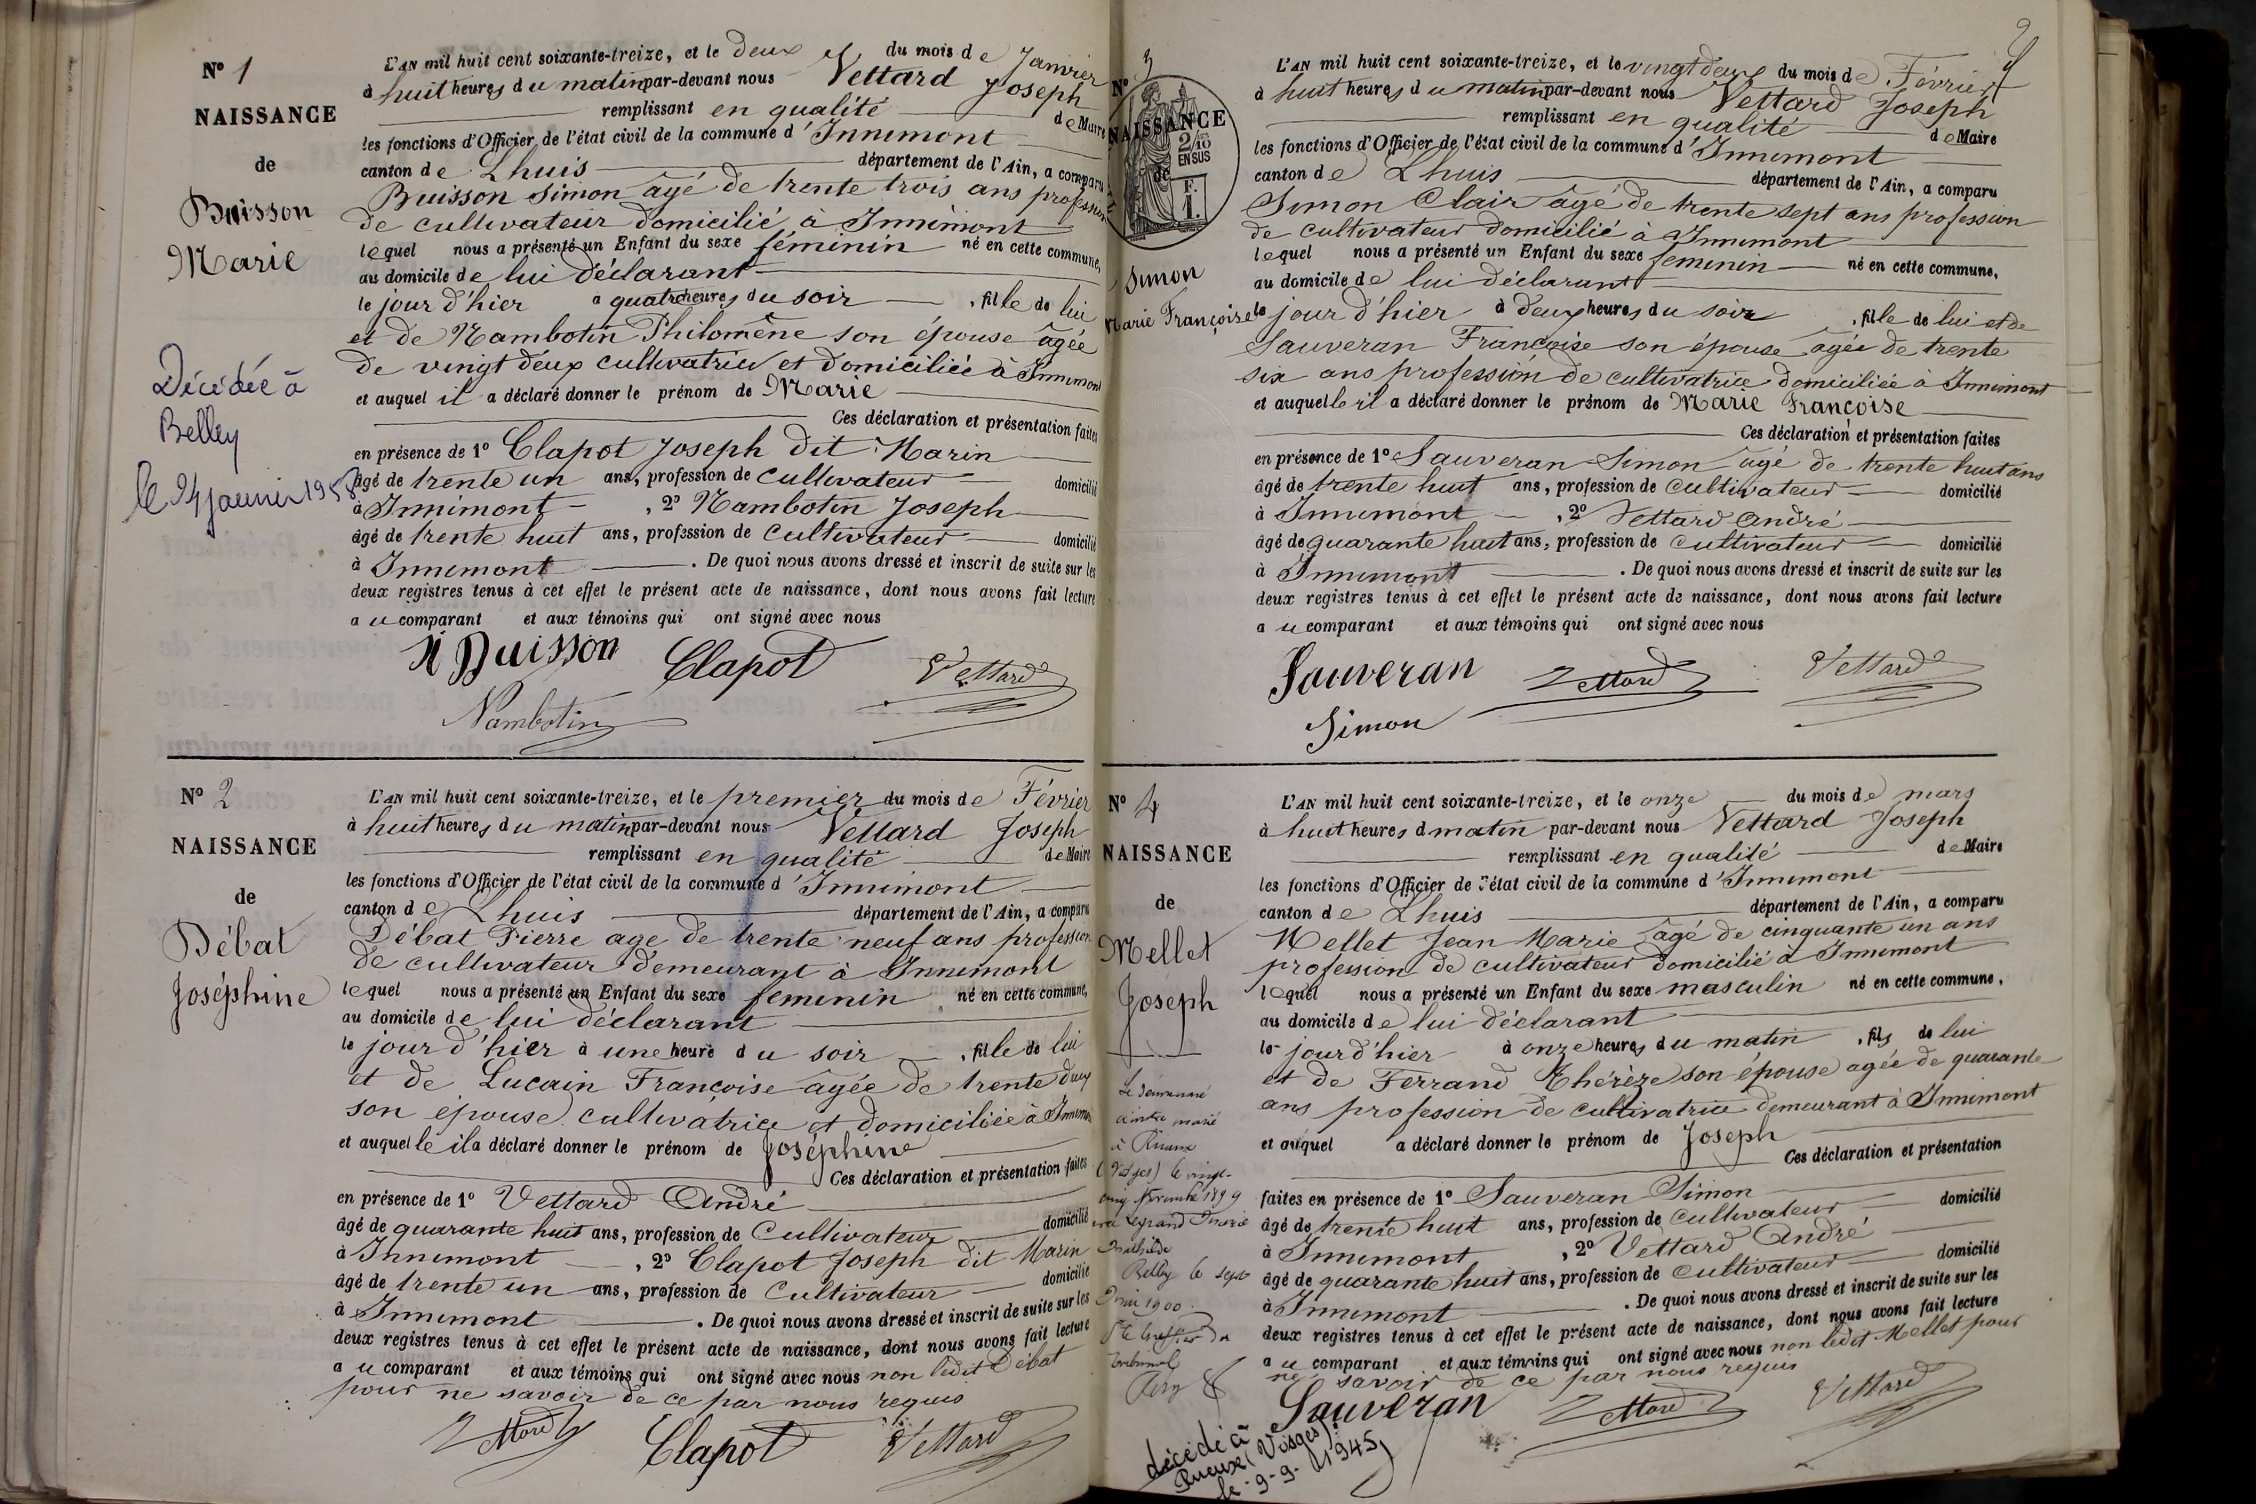 N° 1
NAISSANCE
de
Buisson
Marie
Décédée à
Belley
le 24 janvier 1958
L'AN mil huit cent soixante-treize, et le deux du mois de Janvier
à huit heures du matin par-devant nous Vettard Joseph
remplissant en qualité de Maire
les fonctions d'Officier de l'état civil de la commune d'Innimont
canton de Lhuis département de l'Ain, a comparu
Buisson Simon âgé de trente trois ans profession
de cultivateur domicilié à Innimont
lequel nous a présenté un Enfant du sexe féminin né en cette commune,
au domicile de lui déclarant
le jour d'hier à quatre heures du soir , fille de lui
et de Nambotin Philomène son épouse âgée
de vingt deux cultivatrice et domiciliée à Innimont
et auquel il a déclaré donner le prénom de Marie
Ces déclaration et présentation faites
en présence de 1° Clapot Joseph dit Marin
âgé de trente un ans, profession de cultivateur domicilié
à Innimont , 2° Nambotin Joseph
âgé de trente huit ans, profession de cultivateur domicilié
à Innimont . De quoi nous avons dressé et inscrit de suite sur les
deux registres tenus à cet effet le présent acte de naissance, dont nous avons fait lecture
au comparant et aux témoins qui ont signé avec nous
Buisson Clapot Vettard
Nambotin
N° 2
NAISSANCE
de
Débat
Joséphine
L'AN mil huit cent soixante-treize, et le premier du mois de Février
à huit heures du matin par-devant nous Vettard Joseph
remplissant en qualité de Maire
les fonctions d'Officier de l'état civil de la commune d'Innimont
canton de Lhuis département de l'Ain, a comparu
Débat Pierre age de trente neuf ans profession
de cultivateur demeurant à Innimont
lequel nous a présenté un Enfant du sexe feminin né en cette commune,
au domicile de lui déclarant
le jour d'hier à une heure du soir , fille de lui
et de Lucain Françoise âgée de trente deux
son épouse cultivatrice et domiciliée à Innimont
et auquelle il a déclaré donner le prénom de Joséphine
Ces déclaration et présentation faites
en présence de 1° Vettard André
âgé de quarante huit ans, profession de Cultivateur domicilié
à Innimont , 2° Clapot Joseph dit Marin
âgé de trente un ans, profession de Cultivateur domicilié
à Innimont . De quoi nous avons dressé et inscrit de suite sur les
deux registres tenus à cet effet le présent acte de naissance, dont nous avons fait lecture
au comparant et aux témoins qui ont signé avec nous non ledit Débat
pour ne savoir de ce par nous requis
Vettard Clapot Vettard
2
N° 3
NAISSANCE
2/10
EN SUS
de
F.
1.
Simon
Marie Françoise
L'AN mil huit cent soixante-treize, et le vingt deux du mois de Février
à huit heures du matin par-devant nous Vettard Joseph
remplissant en qualité de Maire
les fonctions d'Officier de l'état civil de la commune d'Innimont
canton de Lhuis département de l'Ain, a comparu
Simon Clair âgé de trente sept ans profession
de cultivateur domicilié à Innimont
lequel nous a présenté un Enfant du sexe feminin né en cette commune,
au domicile de lui déclarant
le jour d'hier à deux heures du soir , fille de lui et de
Sauveran Françoise son épouse âgée de trente
six ans profession de cultivatrice domiciliée à Innimont
et auquelle il a déclaré donner le prénom de Marie Françoise
Ces déclaration et présentation faites
en présence de 1° Sauveran Simon âgé de trente huit ans
âgé de trente huit ans, profession de cultivateur domicilié
à Innimont , 2° Vettard André
âgé de quarante huit ans, profession de cultivateur domicilié
à Innimont . De quoi nous avons dressé et inscrit de suite sur les
deux registres tenus à cet effet le présent acte de naissance, dont nous avons fait lecture
au comparant et aux témoins qui ont signé avec nous
Sauveran Vettard Vettard
Simon
N° 4
NAISSANCE
de
Mellet
Joseph
Le dénommé
ci-contre marié
à
(Vosges) le vingt-
cinq Novembre 1899
Legrand Marie
Mathilde
Belley le sept
1900
Le Greffier du
Tribunal
décédé à
(Vosges)
le 9-9-1945
L'AN mil huit cent soixante-treize, et le onze du mois de mars
à huit heures d matin par-devant nous Vettard Joseph
remplissant en qualité de Maire
les fonctions d'Officier de l'état civil de la commune d'Innimont
canton de Lhuis département de l'Ain, a comparu
Mellet Jean Marie âgé de cinquante un ans
profession de cultivateur domicilié à Innimont
lequel nous a présenté un Enfant du sexe masculin né en cette commune,
au domicile de lui déclarant
le jour d'hier à onze heures du matin , fils de lui
et de Ferrand Thérèze son épouse agée de quarante
ans profession de cultivatrice demeurant à Innimont
et auquel a déclaré donner le prénom de Joseph
Ces déclaration et présentation
faites en présence de 1° Sauveran Simon domicilié
âgé de trente huit ans, profession de cultivateur
à Innimont , 2° Vettard André domicilié
âgé de quarante huit ans, profession de cultivateur
à Innimont . De quoi nous avons dressé et inscrit de suite sur les
deux registres tenus à cet effet le présent acte de naissance, dont nous avons fait lecture
au comparant et aux témoins qui ont signé avec nous non ledit Mellet pour
ne savoir de ce par nous requis
Sauveran Vettard Vettard